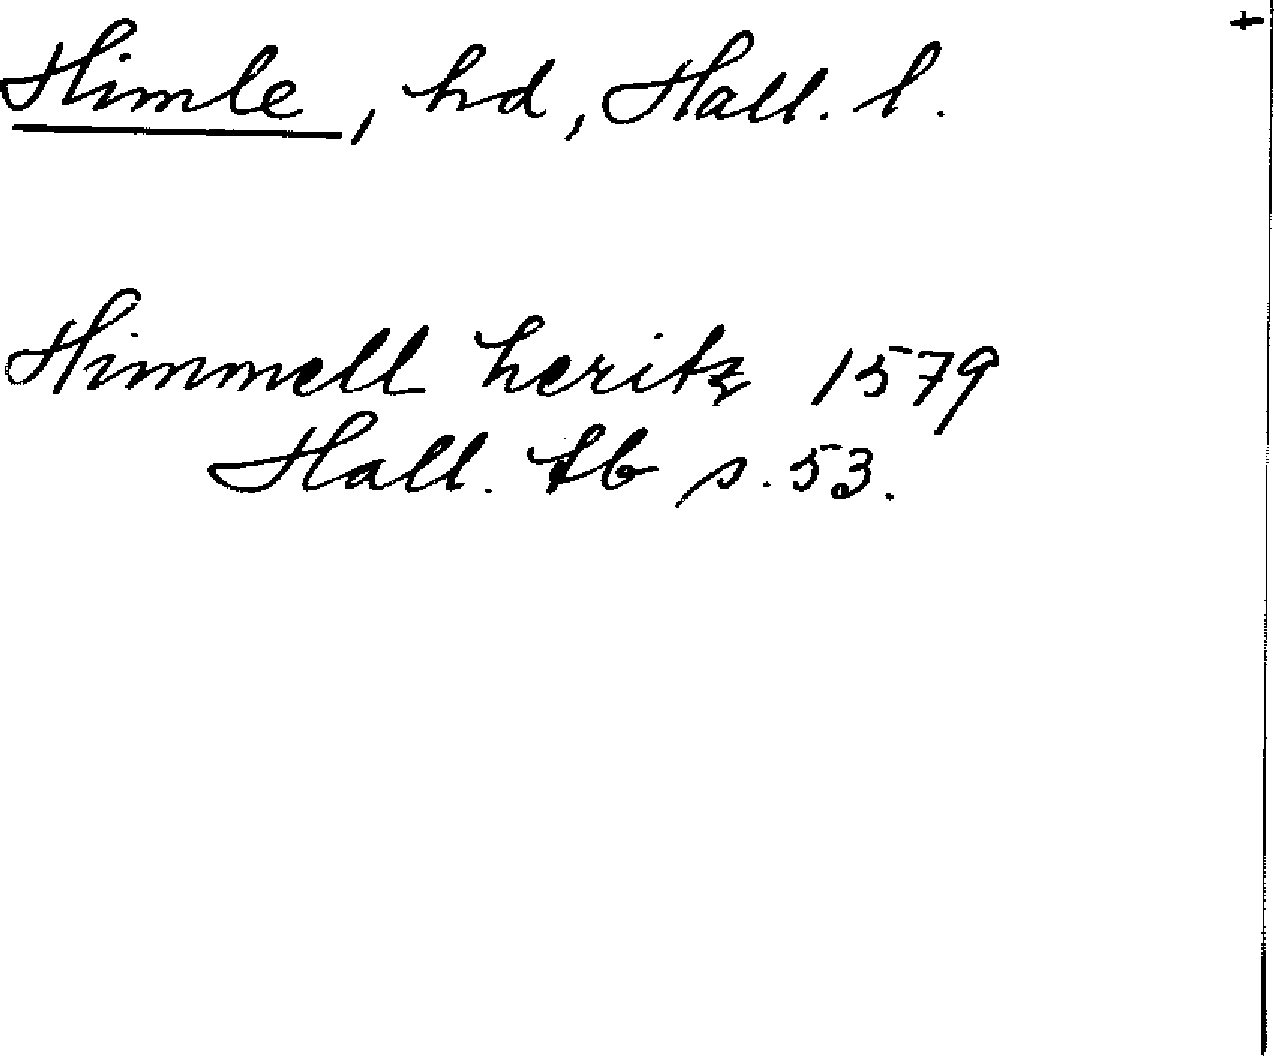 Himle, hd, Hall. l.
Himmell heritz 1579
Hall. tb s. 53.